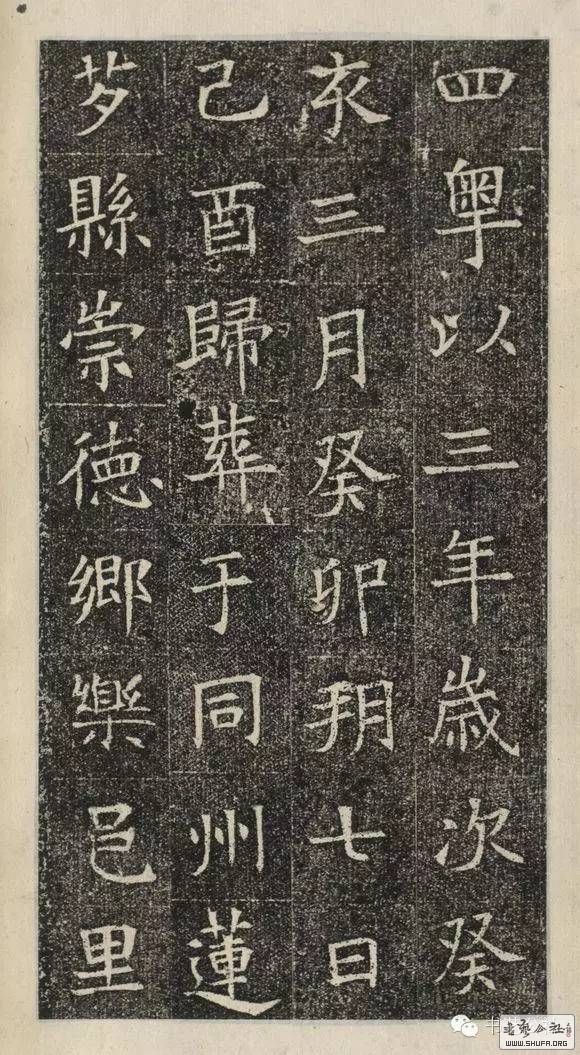 四粤以三年歲次癸
亥三月癸卯朔七日
己酉歸葬于同州蓮
芍縣崇德鄉樂邑里
书艺公社
WWW.SHUFA.ORG